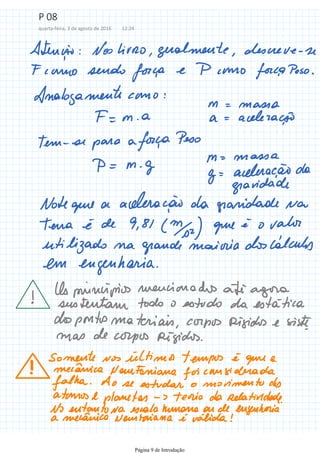 P 08
quarta-feira, 3 de agosto de 2016 12:24
Atenção: Nos livros, geralmente, descreve-se
F como sendo força e P como força Peso.
Analogamente como:
F = m . a
m = massa
a = aceleração
Tem-se para a força Peso
P = m . g
m = massa
g = aceleração da
gravidade
Note que a aceleração da gravidade na
Terra é de 9,81 (m/s²) que é o valor
utilizado na grande maioria dos cálculos
em engenharia.
Os princípios mencionados até agora
sustentam todo o estudo da estática
dos pontos materiais, corpos Rígidos e siste
mas de corpos Rígidos.
Somente nos últimos tempos é que a
mecânica Newtoniana foi considerada
falha. Ao se estudar o movimento dos
átomos e planetas -> teoria da Relatividade.
No entanto na escala humana ou de engenharia
a mecânica Newtoniana é válida!
Página 9 de Introdução